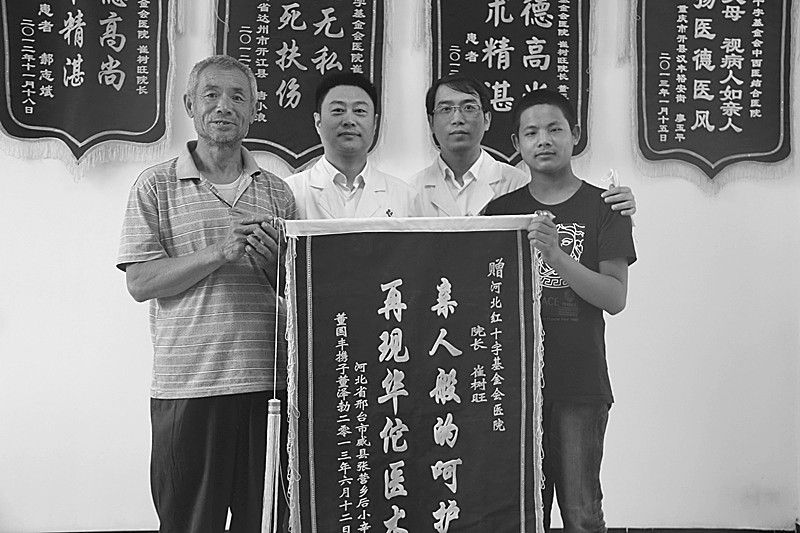 德高尚
精湛
崔树旺院长
患者 郝志斌
二〇一二年十一月十八日
基金会医院
无私
死扶伤
省达州市开江县
德高尚
术精湛
患者
字基金会医院 崔树旺院长
父母 视病人如亲人
扬医德医风
字基金会中西医结合医院
重庆市开县汉丰裕安街 廖玉平
二〇一三年一月十五日
赠河北红十字基金会医院
院长 崔树旺
亲人般的呵护
再现华佗医术
河北省邢台市威县张营乡后小辛
董国丰携子董泽勃二〇一三年六月十二日